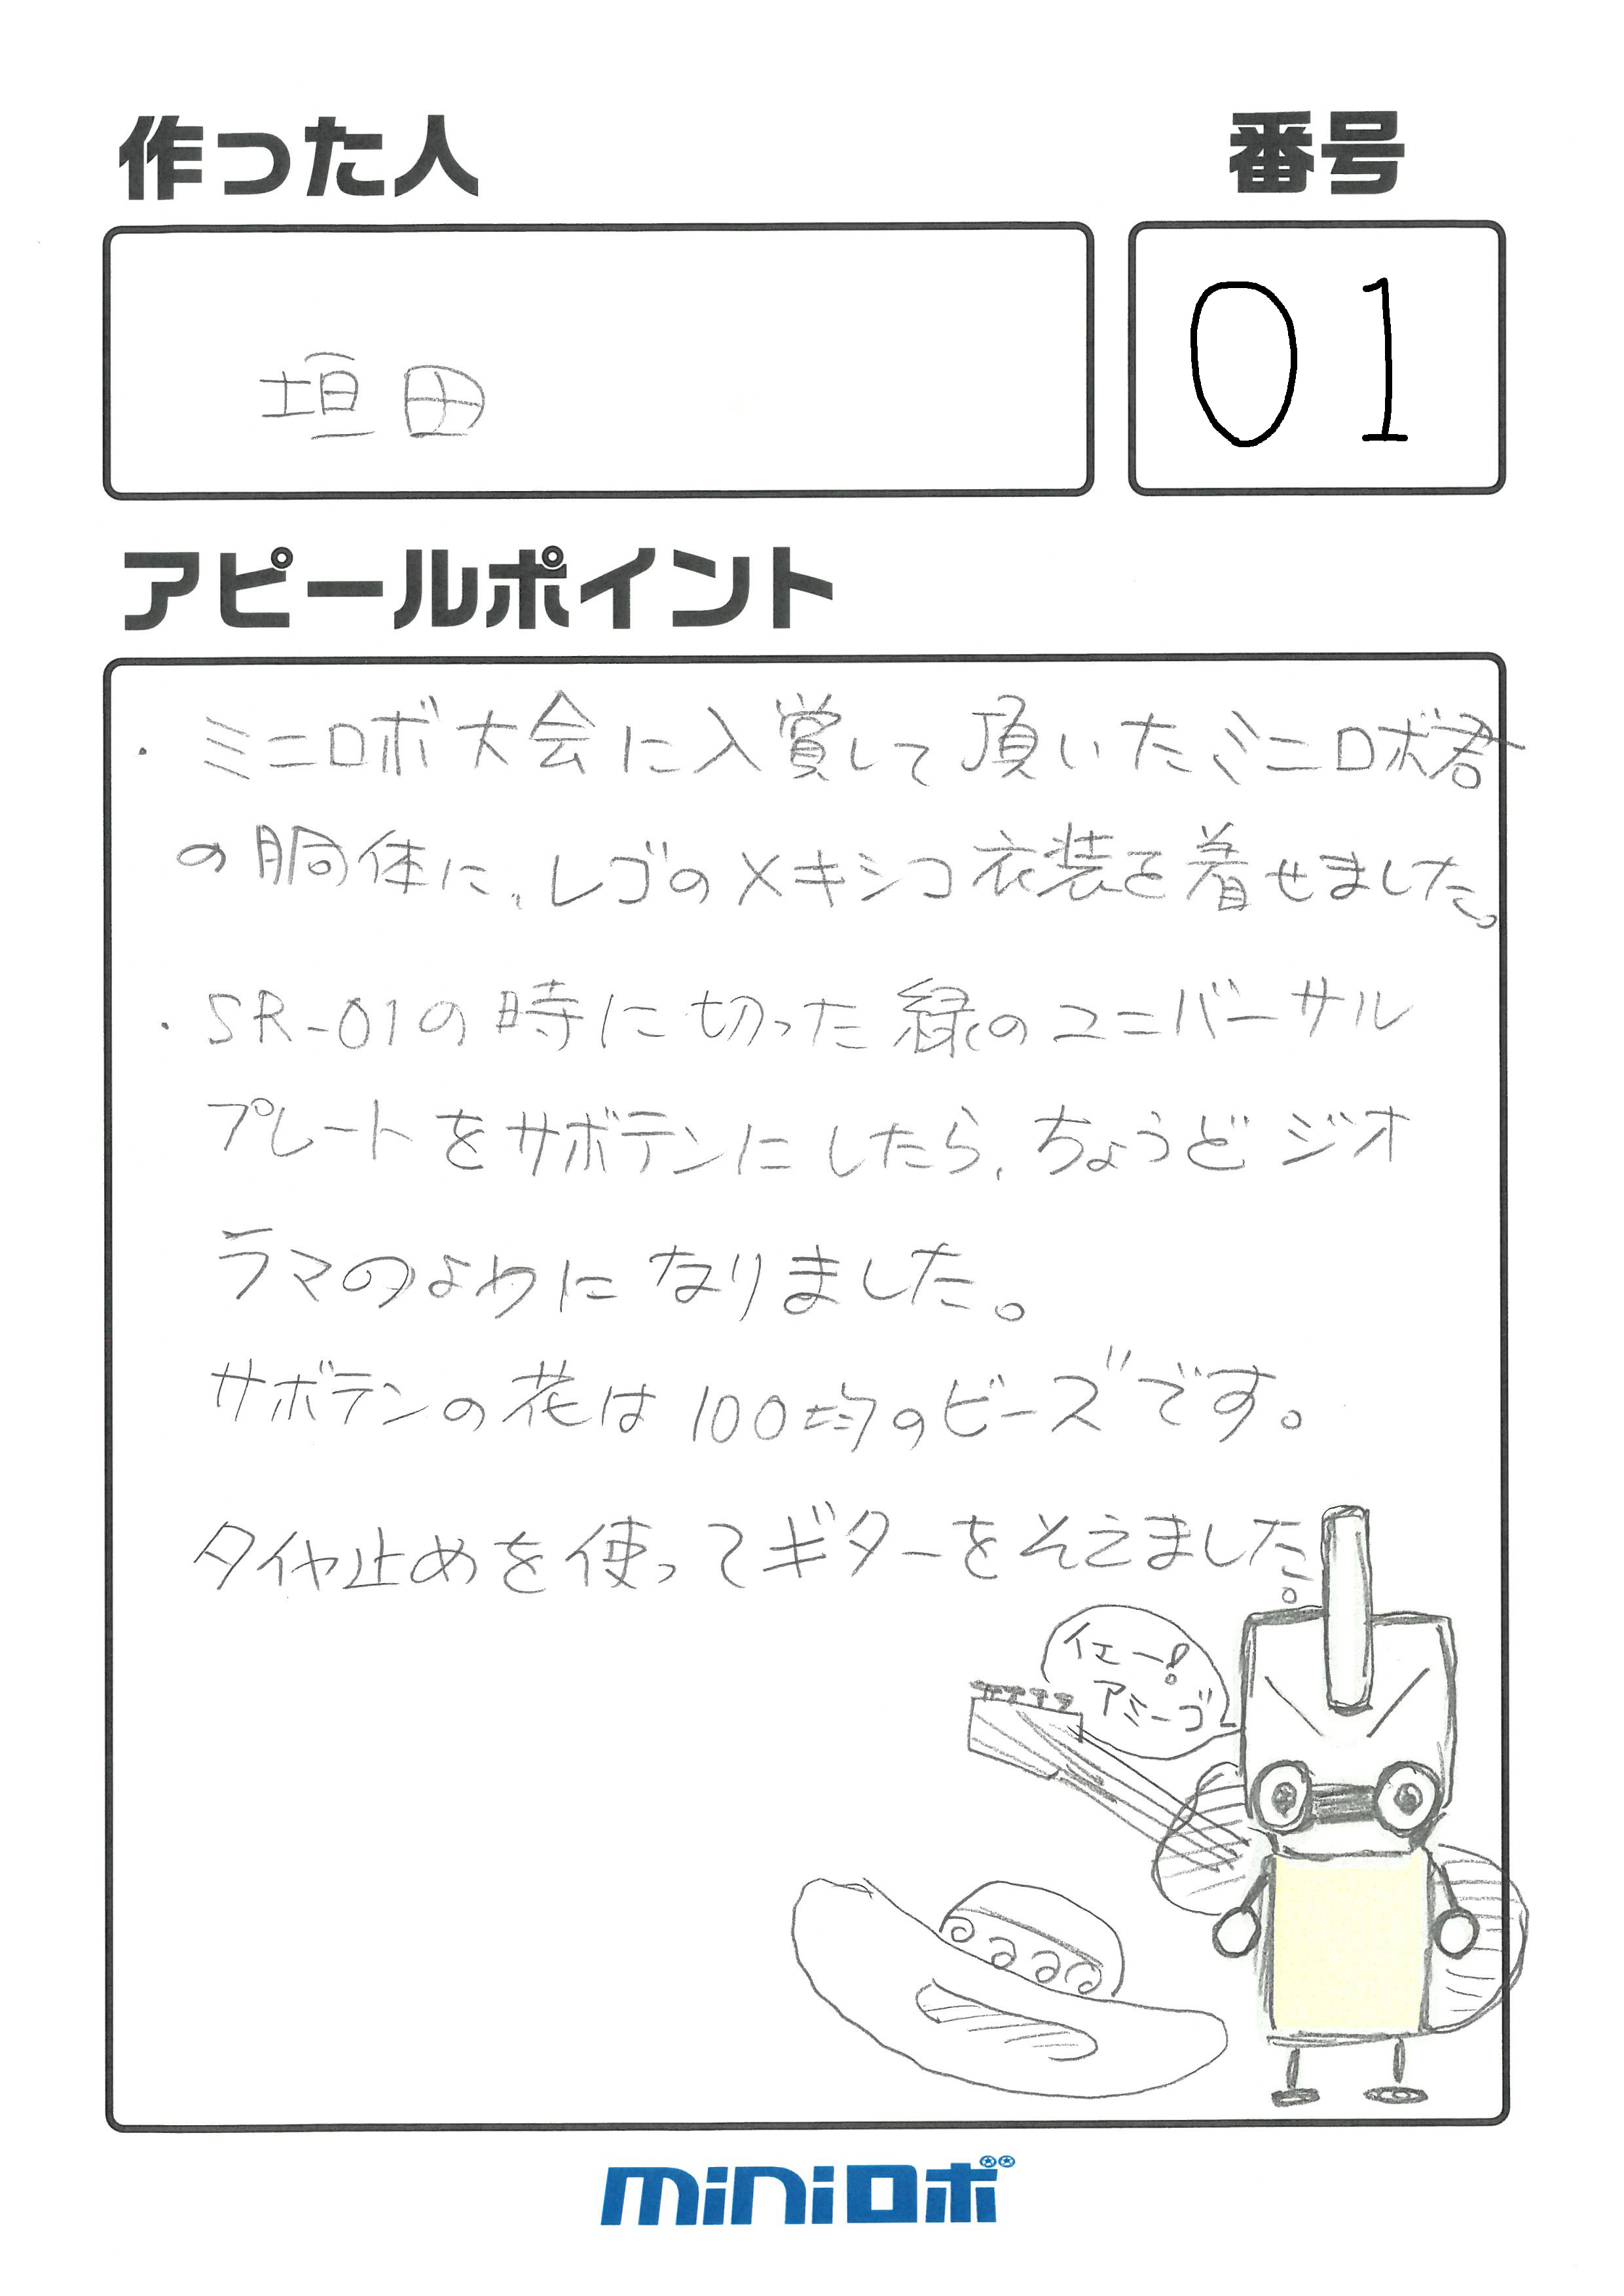 作った人
番号
垣田
01
アピールポイント
・ミニロボ大会に入賞して頂いたミニロボ君
の胴体に、レゴのメキシコ衣装を着せました。
・SR-01の時に切った緑のユニバーサル
プレートをサボテンにしたら、ちょうどジオ
ラマのように なりました。
サボテンの花は100均のビーズです。
タイヤ止めを使ってギターをそえました。
イエー!
アミーゴ
miniロボ